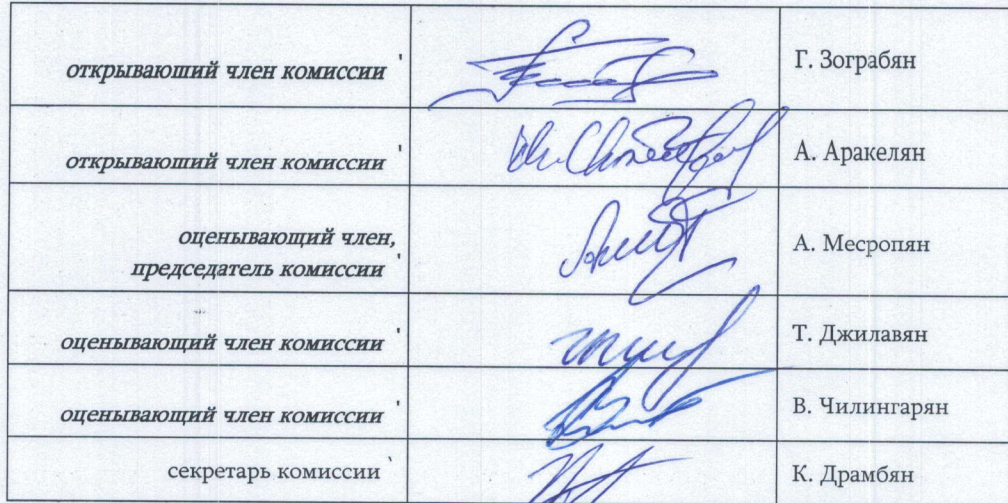 открываюший член комиссии ՝ Г. Зограбян
открываюший член комиссии ՝ А. Аракелян
оценывающий член,
председатель комиссии ՝ А. Месропян
оценывающий член комиссии ՝ Т. Джилавян
оценывающий член комиссии ՝ В. Чилингарян
секретарь комиссии ՝ К. Драмбян